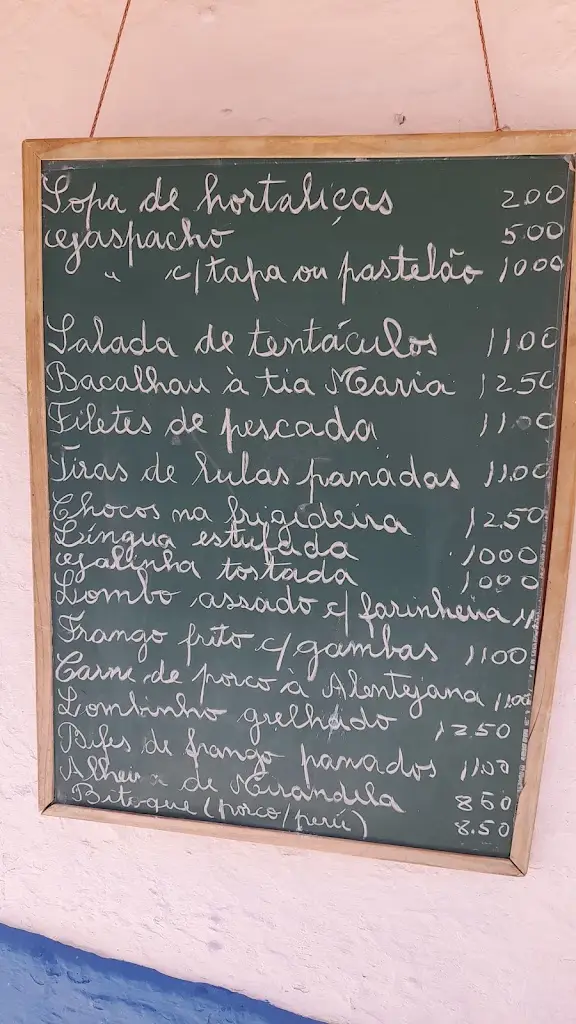 Sopa de hortaliças 200
Gaspacho 5.00
" c/ tapa ou pastelão 10.00
Salada de tentáculos 11.00
Bacalhau à tia Maria 12.50
Filetes de pescada 11.00
Tiras de lulas panadas 11.00
Chocos na frigideira 12.50
Língua estufada 1000
Galinha tostada 1000
Lombo assado c/ farinheira 11
Frango frito c/ gambas 1100
Carne de porco à Alentejana 11.00
Lombinho grelhado 12.50
Bifes de frango panados 11.00
Alheira de Mirandela 850
Bitoque (porco/perú) 8.50